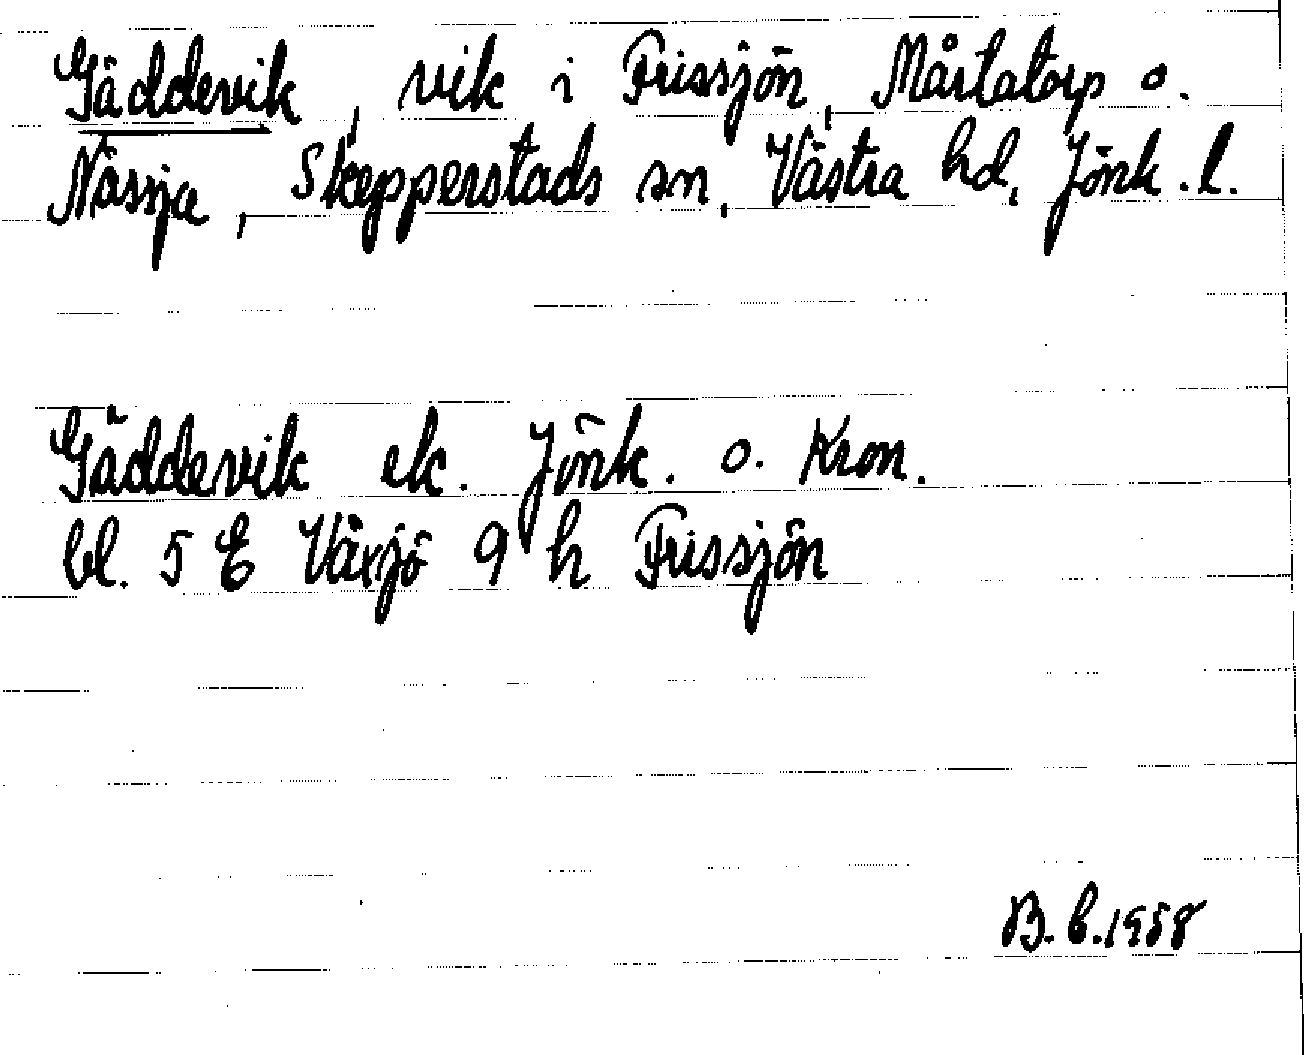 Gäddevik, vik i Frissjön, Mårtatorp o.
Nässja, Skepperstads sn, Västra hd, Jönk. l.
Gäddevik ek. Jönk. o. Kron.
bl. 5 E Växjö 9 h Frissjön
B. E. 1958